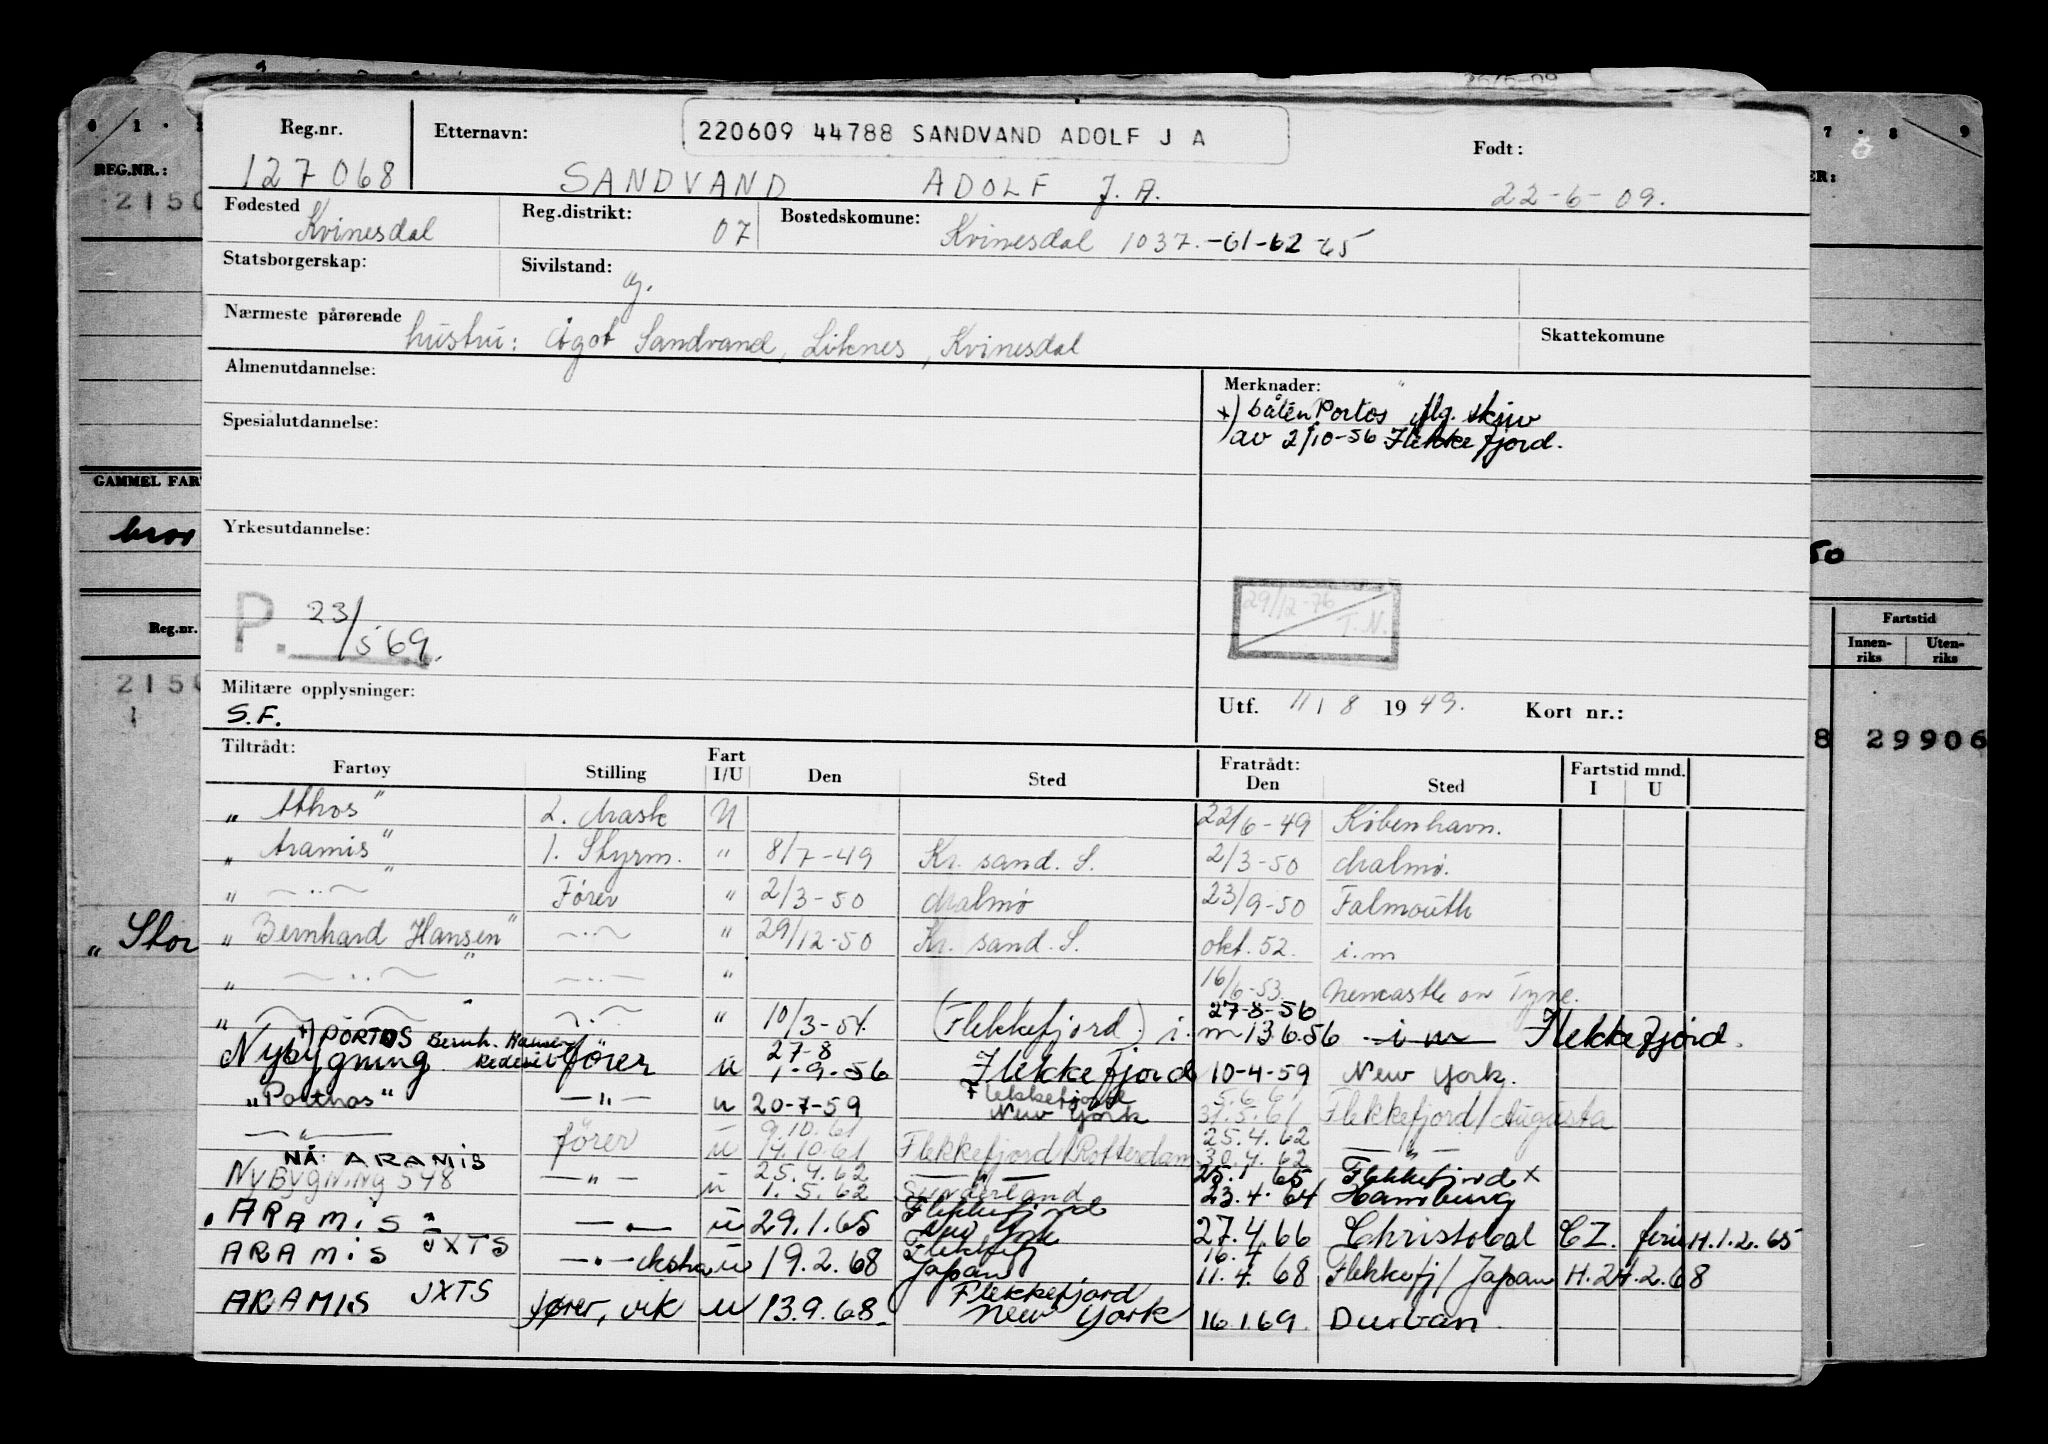 Reg.nr. Etternavn: 220609 44788 SANDVAND ADOLF J A Født:
127068 SANDVAND ADOLF J. A. 22-6-09.
Fødested Kvinesdal Reg.distrikt: 07 Bostedskomune: Kvinesdal 1037.-61-62-65
Statsborgerskap: Sivilstand: g.
Nærmeste pårørende hustru: Agot Sandvand, Liknes, Kvinesdal Skattekomune
Almenutdannelse: Merknader:
x) båten Portos iflg. skriv
av 2/10-56 Flekkefjord.
Spesialutdannelse:
Yrkesutdannelse:
P. 23/5 69.
29/12-76 T.N.
Militære opplysninger: Utf. 11/8 1949. Kort nr.:
S.F.
Tiltrådt: Fart Fratrådt: Fartstid mnd.
Fartøy Stilling I/U Den Sted Den Sted I U
"Athos" 2. Mask U 22/6-49 København.
"Aramis" 1. Styrm. " 8/7-49 Kr. sand. S. 2/3-50 Malmø.
" —"— Fører " 2/3-50 Malmø 23/9-50 Falmouth
"Bernhard Hansen" —"— " 29/12-50 Kr. sand. S. okt. 52. i.m
" —"— " —"— " 16/6-53. Newcastle on Tyne.
" —"— —"— " 10/3-54. (Flekkefjord) i.m 13.6.56 27-8-56 i m Flekkefjord.
x) PORTOS Bernh. Hansen
Nybygning Rederi fører u 27-8 1-9-56 Flekkefjord 10-4-59 New York.
"Porthos" —"— u 20-7-59 Flekkefjord New York 5.6.61 31.5.61 Flekkefjord/Augusta
—"— fører u 9.10.61 14.10.61 Flekkefjord/Rotterdam 25.4.62 30.4.62 —"—
NÅ: ARAMIS
NYBYGNING 548 —"— u 25.4.62 1.5.62 —"— Sunderland 25.1.65 23.4.64 Flekkefjord x Hamburg
"ARAMIS" —"— u 29.1.65 Flekkefjord New York 27.4.66 Christobal CZ. ferie H.1.2.65
ARAMIS JXTS —"— ekstra u 19.2.68 Flekkefj Japan 16.4 11.4.68 Flekkefj/Japan H.24.2.68
ARAMIS JXTS fører, vik u 13.9.68 Flekkefjord New York 16.1.69. Durban.
REG.NR.:
2150
GAMMEL FAR
Reg.nr.
2150
1
"Stor
7 . 8 9
ER:
50
Fartstid
Innen-riks Uten-riks
8 29906